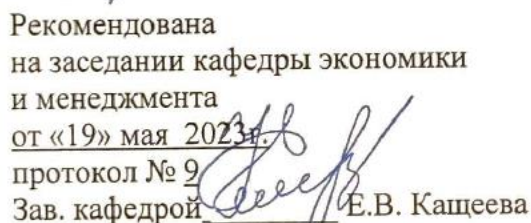 Рекомендована
на заседании кафедры экономики
и менеджмента
от «19» мая 2023г.
протокол № 9
Зав. кафедрой__________Е.В. Кащеева